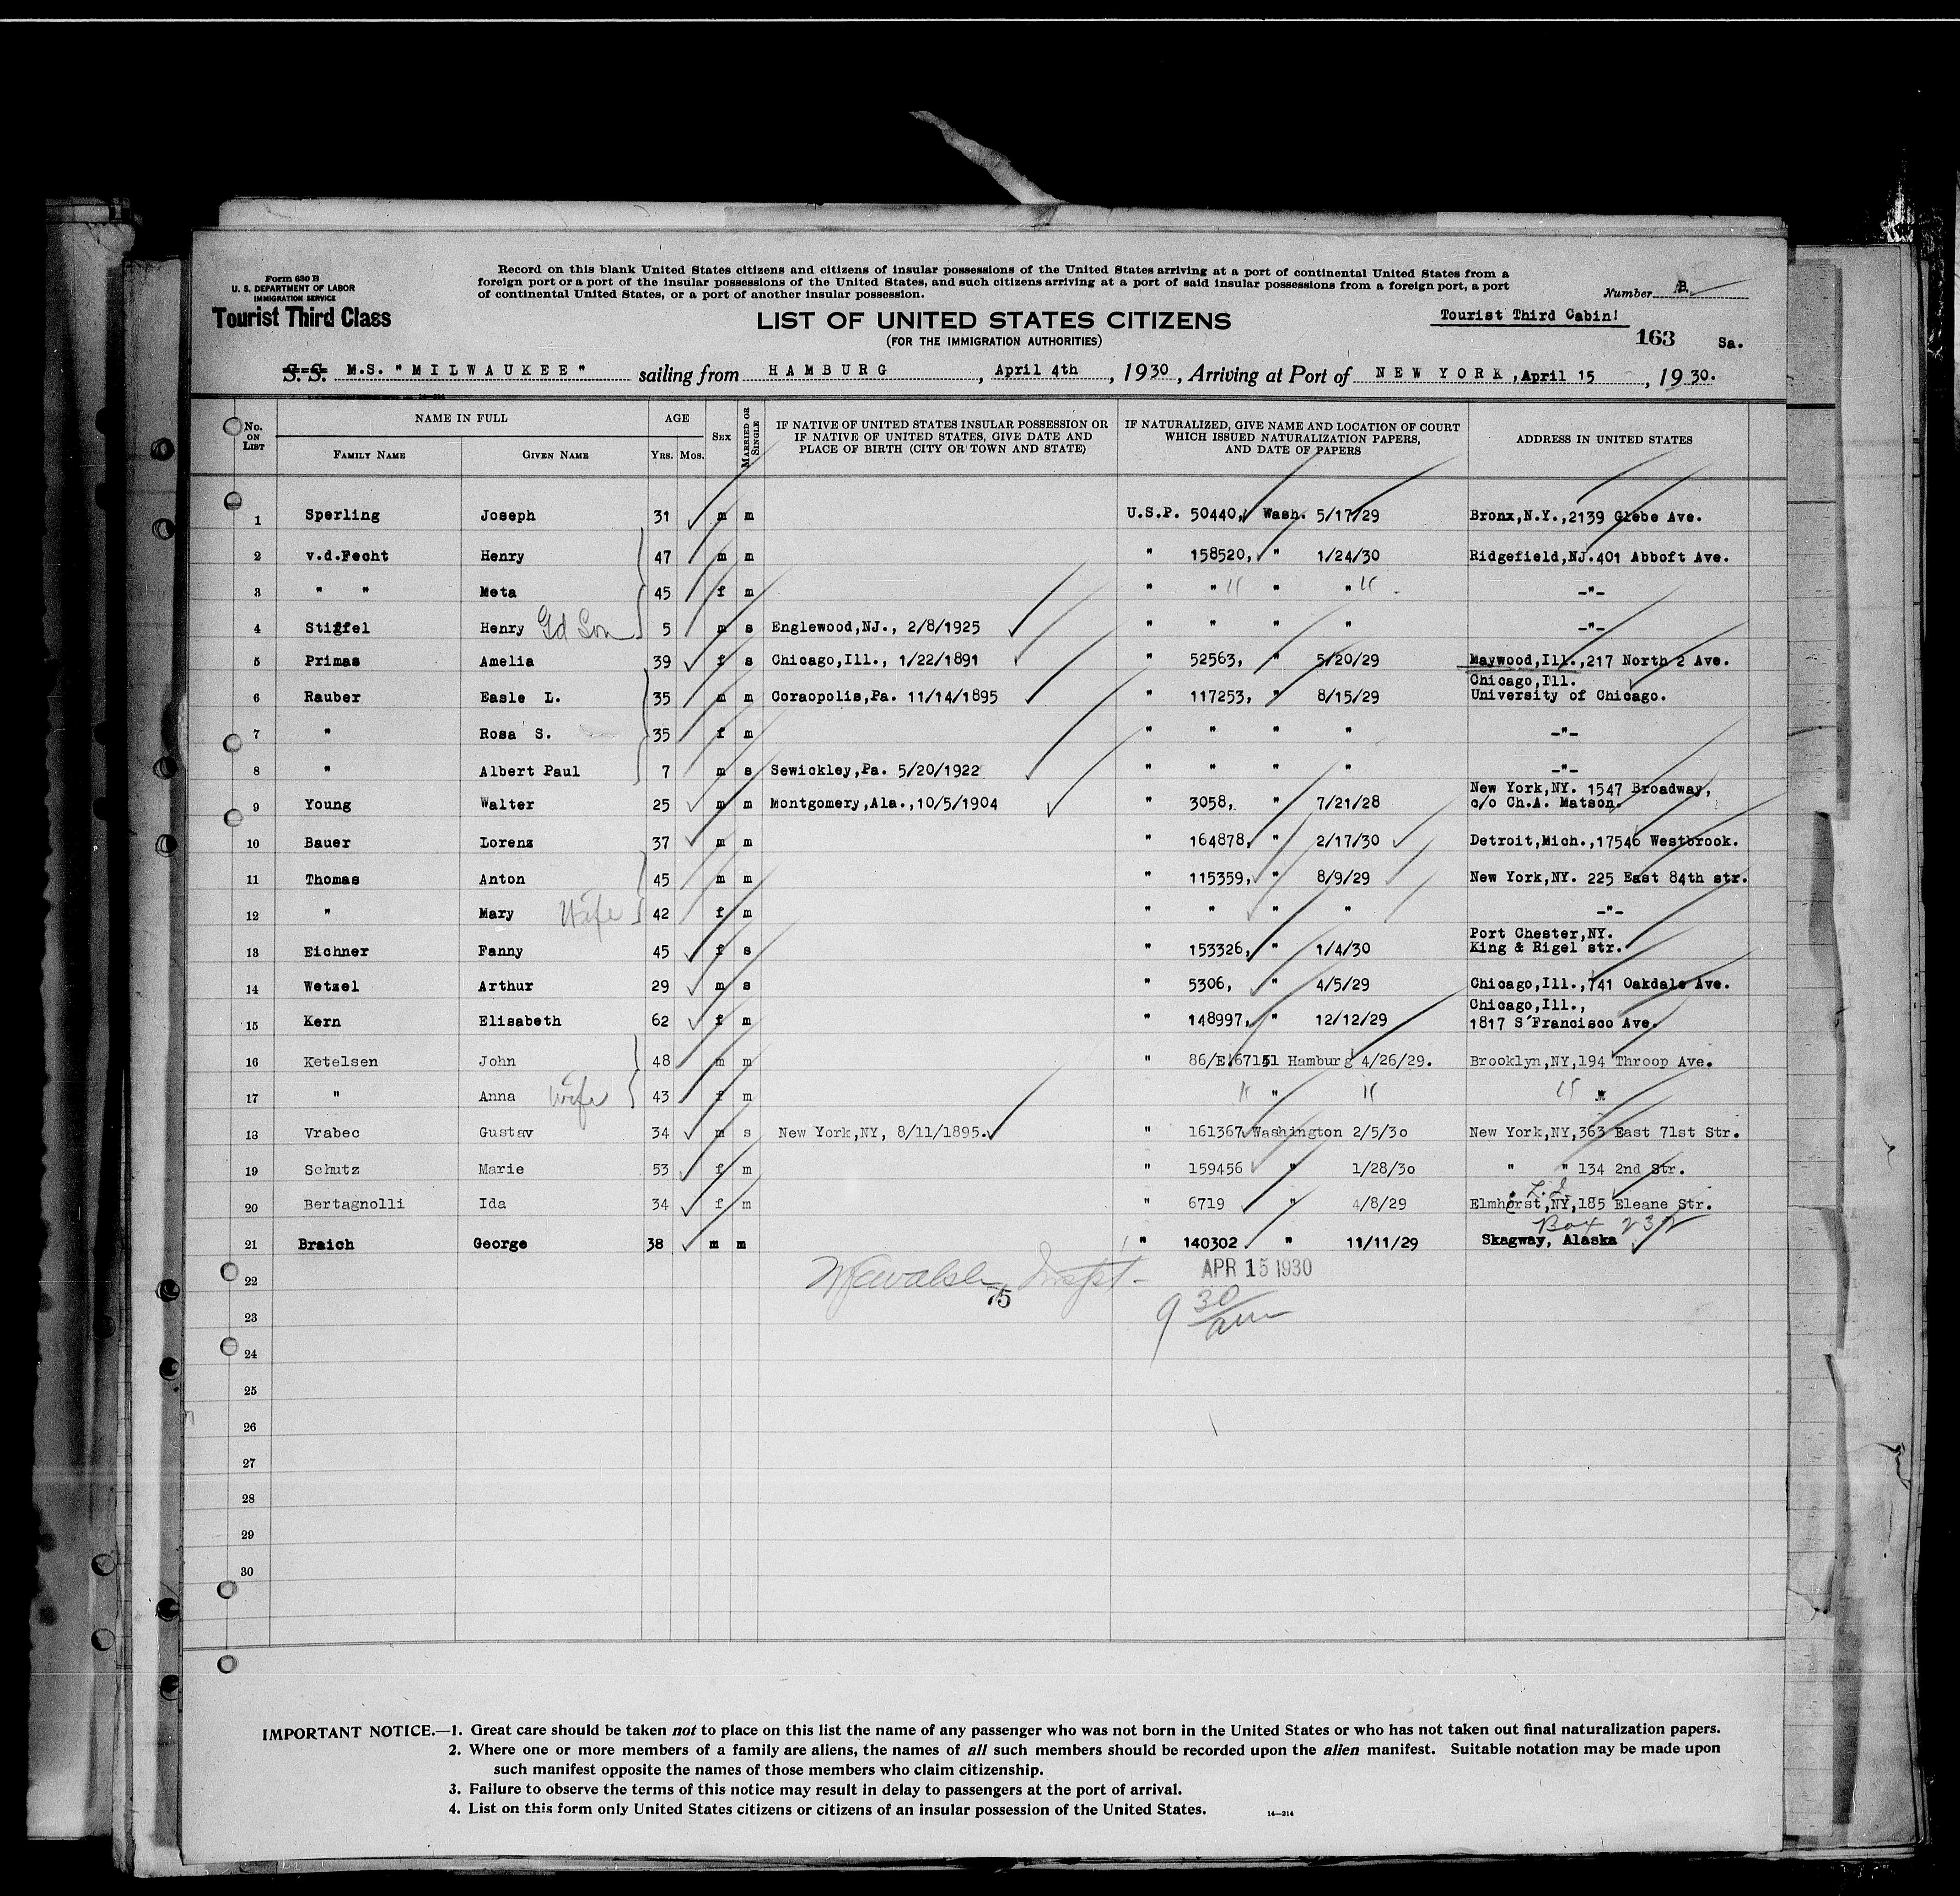 Form 630 B
U. S. DEPARTMENT OF LABOR
IMMIGRATION SERVICE
Tourist Third Class
Record on this blank United States citizens and citizens of insular possessions of the United States arriving at a port of continental United States from a
foreign port or a port of the insular possessions of the United States, and such citizens arriving at a port of said insular possessions from a foreign port, a port
of continental United States, or a port of another insular possession.
Number B.
LIST OF UNITED STATES CITIZENS
(FOR THE IMMIGRATION AUTHORITIES)
Tourist Third Cabin!
163 Sa.
S. S. M.S. "MILWAUKEE" sailing from HAMBURG, April 4th, 1930, Arriving at Port of NEW YORK, April 15, 1930.
No. ON LIST NAME IN FULL AGE SEX MARRIED OR SINGLE IF NATIVE OF UNITED STATES INSULAR POSSESSION OR IF NATIVE OF UNITED STATES, GIVE DATE AND PLACE OF BIRTH (CITY OR TOWN AND STATE) IF NATURALIZED, GIVE NAME AND LOCATION OF COURT WHICH ISSUED NATURALIZATION PAPERS, AND DATE OF PAPERS ADDRESS IN UNITED STATES
FAMILY NAME GIVEN NAME YRS. MOS.
1 Sperling Joseph 31 m m U.S.P. 50440, Wash. 5/17/29 Bronx,N.Y.,2139 Glebe Ave.
2 v.d.Fecht Henry 47 m m " 158520, " 1/24/30 Ridgefield,NJ.401 Abboft Ave.
3 " " Meta 45 f m " " " " " " -"-
4 Stiffel Henry Gd Son 5 m s Englewood,NJ., 2/8/1925 " " " " -"-
5 Primas Amelia 39 f s Chicago,Ill., 1/22/1891 " 52563, " 5/20/29 Maywood,Ill.,217 North 2 Ave.
6 Rauber Easle L. 35 m m Coraopolis,Pa. 11/14/1895 " 117253, " 8/15/29 Chicago,Ill. University of Chicago.
7 " Rosa S. 35 f m " " " " -"-
8 " Albert Paul 7 m s Sewickley,Pa. 5/20/1922 " " " " -"-
9 Young Walter 25 m m Montgomery,Ala.,10/5/1904 " 3058, " 7/21/28 New York,NY. 1547 Broadway, c/o Ch.A. Matson.
10 Bauer Lorenz 37 m m " 164878, " 2/17/30 Detroit,Mich.,17546 Westbrook.
11 Thomas Anton 45 m m " 115359, " 8/9/29 New York,NY. 225 East 84th str.
12 " Mary Wife 42 f m " " " " -"-
13 Eichner Fanny 45 f s " 153326, " 1/4/30 Port Chester,NY. King & Rigel str.
14 Wetzel Arthur 29 m s " 5306, " 4/5/29 Chicago,Ill.,741 Oakdale Ave.
15 Kern Elisabeth 62 f m " 148997, " 12/12/29 Chicago,Ill., 1817 S'Francisco Ave.
16 Ketelsen John 48 m m " 86/E.67151 Hamburg 4/26/29. Brooklyn,NY,194 Throop Ave.
17 " Anna Wife 43 f m " " " " "
18 Vrabec Gustav 34 m s New York,NY, 8/11/1895. " 161367 Washington 2/5/30 New York,NY,363 East 71st Str.
19 Schutz Marie 53 f m " 159456 " 1/28/30 " " 134 2nd Str.
20 Bertagnolli Ida 34 f m " 6719 " 4/8/29 L.I. Elmhorst,NY,185 Eleane Str.
21 Braich George 38 m m " 140302 " 11/11/29 Box 232 Skagway, Alaska
22 APR 15 1930
75
23 9 30 am
24
25
26
27
28
29
30
IMPORTANT NOTICE.—1. Great care should be taken not to place on this list the name of any passenger who was not born in the United States or who has not taken out final naturalization papers.
2. Where one or more members of a family are aliens, the names of all such members should be recorded upon the alien manifest. Suitable notation may be made upon
such manifest opposite the names of those members who claim citizenship.
3. Failure to observe the terms of this notice may result in delay to passengers at the port of arrival.
4. List on this form only United States citizens or citizens of an insular possession of the United States.
14—314